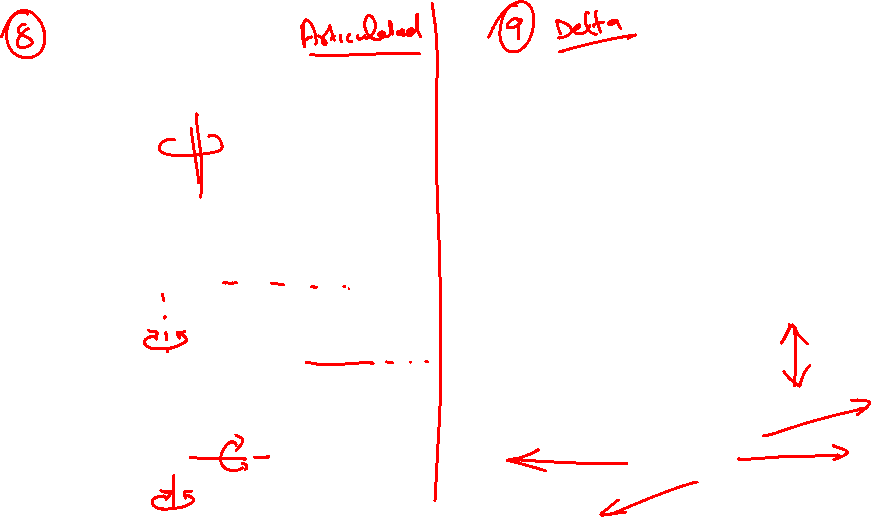 8 Articulated
9 Delta